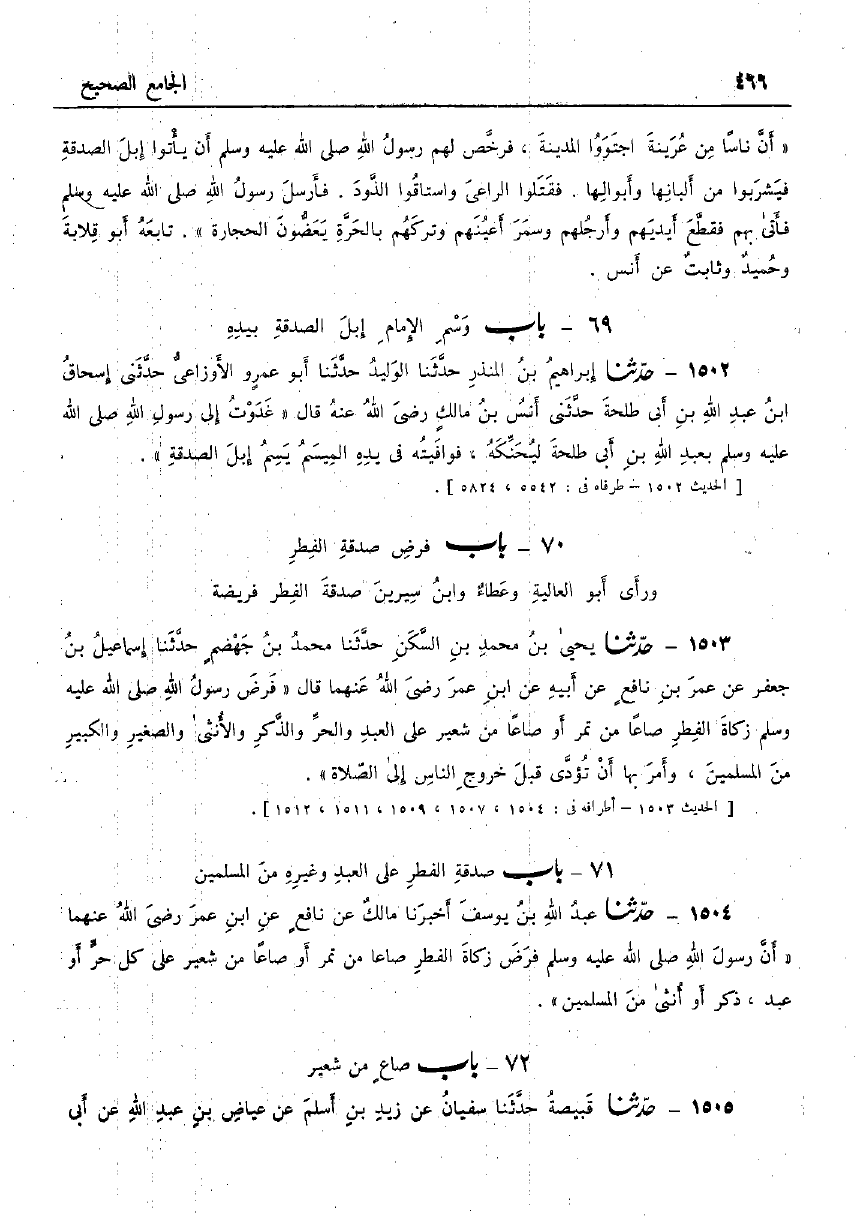 ٤٦٦ الجامع الصحيح
« أَنَّ ناسًا مِن عُرَينةَ اجتَوَوُا المدينةَ ، فرخَّص لهم رسولُ اللهِ صلى الله عليه وسلم أن يأْتوا إبلَ الصدقةِ
فيَشرَبوا من ألبانِها وأبوالِها . فقَتَلوا الراعىَ واستاقُوا الذَّودَ . فأرسلَ رسولُ اللهِ صلى الله عليه وسلم
فأُتىَ بهم فقطَّعَ أيديَهم وأرجُلَهم وسمَرَ أعيُنَهم وتركَهُم بالحَرَّةِ يَعَضُّونَ الحجارة » . تابعَهُ أبو قِلابةَ
وحُميدٌ وثابتٌ عن أنس .
٦٩ – باب وَسْمِ الإمامِ إبلَ الصدقةِ بيدِهِ
١٥٠٢ – حدّثنا إبراهيمُ بنُ المنذرِ حدَّثَنا الوليدُ حدَّثَنا أبو عمرٍو الأوزاعىُّ حدَّثَنى إسحاقُ
ابنُ عبدِ اللهِ بنِ أبى طلحةَ حدَّثَنى أنَسُ بنُ مالكٍ رضىَ اللهُ عنهُ قال « غَدَوْتُ إلى رسولِ اللهِ صلى الله
عليه وسلم بعبدِ اللهِ بنِ أبى طلحةَ ليُحَنِّكَهُ ، فوافَيتُه فى يدِهِ المِيسَمُ يَسِمُ إبلَ الصدقةِ » .
[ الحديث ١٥٠٢ – طرفاه فى : ٥٥٤٢ ، ٥٨٢٤ ] .
٧٠ – باب فرضِ صدقةِ الفِطرِ
ورأى أبو العاليةِ وعَطاءٌ وابنُ سِيرينَ صدقةَ الفِطرِ فريضة
١٥٠٣ – حدّثنا يحيىٰ بنُ محمدِ بنِ السَّكَنِ حدَّثَنا محمدُ بنُ جَهْضَمٍ حدَّثَنا إسماعيلُ بنُ
جعفرٍ عن عمرَ بنِ نافعٍ عن أبيهِ عن ابنِ عمرَ رضىَ اللهُ عَنهما قال « فَرَضَ رسولُ اللهِ صلى الله عليه
وسلم زكاةَ الفِطرِ صاعًا من تمر أو صاعًا من شعيرٍ على العبدِ والحرِّ والذَّكرِ والأُنثىٰ والصغيرِ والكبيرِ
منَ المسلمينَ ، وأمرَ بها أَنْ تُؤدَّى قبلَ خروجِ الناسِ إلىٰ الصّلاة » .
[ الحديث ١٥٠٣ – أطرافه فى : ١٥٠٤ ، ١٥٠٧ ، ١٥٠٩ ، ١٥١١ ، ١٥١٢ ] .
٧١ – باب صدقةِ الفطرِ على العبدِ وغيرِهِ منَ المسلمين
١٥٠٤ – حدّثنا عبدُ اللهِ بنُ يوسفَ أخبرَنا مالكٌ عن نافعٍ عنِ ابنِ عمرَ رضىَ اللهُ عنهما
« أنَّ رسولَ اللهِ صلى الله عليه وسلم فرَضَ زكاةَ الفطرِ صاعا من تمر أو صاعًا من شعير على كل حرٍّ أو
عبد ، ذكر أو أُنثىٰ منَ المسلمين » .
٧٢ – باب صاعٍ من شعير
١٥٠٥ – حدّثنا قَبيصةُ حدَّثَنا سفيانُ عن زيدِ بنِ أسلمَ عن عياضِ بنِ عبدِ اللهِ عن أبى